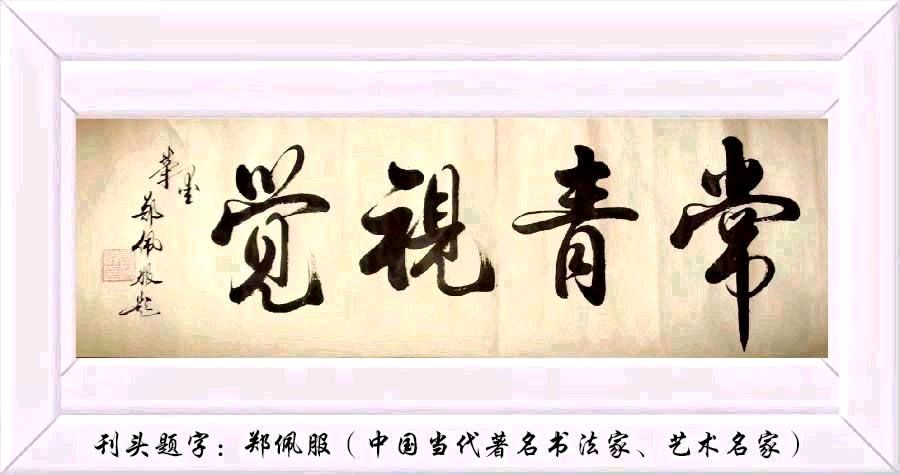 常青視覺
郑佩服题
刊头题字：郑佩服（中国当代著名书法家、艺术名家）